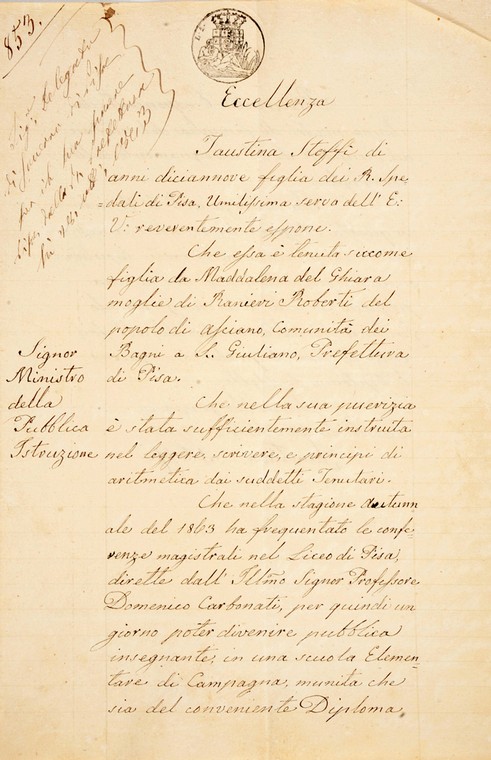 853.
Sig. Delegato
Eccellenza
Faustina Stoffi di
anni diciannove figlia dei R. Spe
=dali di Pisa, Umilissima serva dell' E:
V: reverentemente espone.
Che essa è tenuta siccome
figlia da Maddalena del Ghiara
moglie di Ranieri Roberti del
popolo di Asciano, Comunità dei
Bagni a S. Giuliano, Prefettura
di Pisa.
Signor
Ministro
della
Pubblica
Istruzione
Che nella sua puerizia
è stata sufficientemente instruita
nel leggere, scrivere, e principi di
aritmetica dai suddetti Tenutari.
Che nella stagione autunn
ale del 1863 ha frequentato le confe
renze magistrali nel Liceo di Pisa,
dirette dall' Illmo Signor Professore
Domenico Carbonati, per quindi un
giorno poter divenire pubblica
insegnante, in una scuola Elemen=
tare di Campagna, munita che
sia del conveniente Diploma,